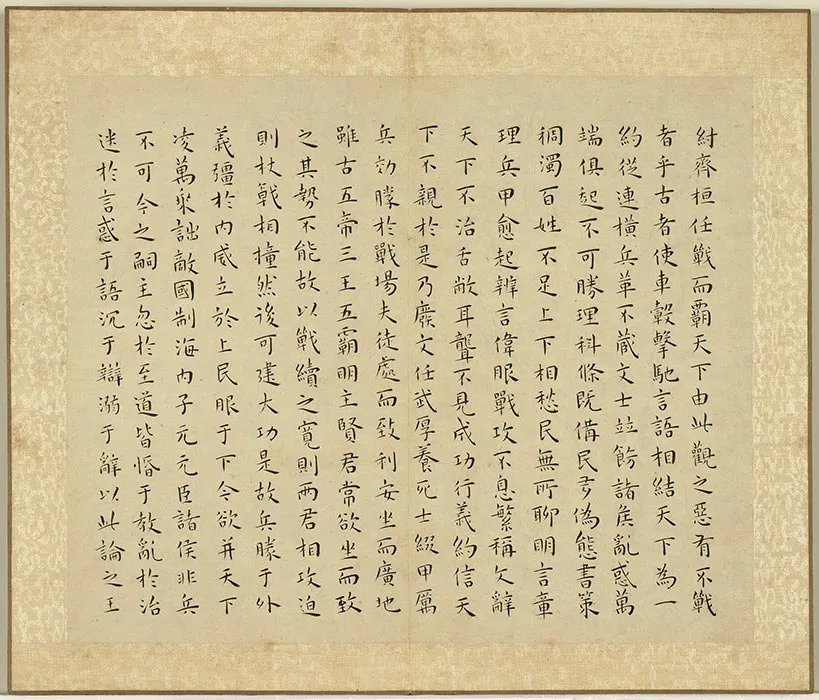 紂齊桓任戰而霸天下由此觀之惡有不戰
者乎古者使車轂擊馳言語相結天下為一
約從連橫兵革不藏文士竝飭諸侯亂惑萬
端俱起不可勝理科條既備民多偽態書策
稠濁百姓不足上下相愁民無所聊明言章
理兵甲愈起辨言偉服戰攻不息繁稱文辭
天下不治舌敝耳聾不見成功行義約信天
下不親於是乃廢文任武厚養死士綴甲厲
兵効勝於戰場夫徒處而致利安坐而廣地
雖古五帝三王五霸明主賢君常欲坐而致
之其勢不能故以戰續之寬則兩君相攻迫
則杖戟相撞然後可建大功是故兵勝于外
義彊於内威立於上民服于下今欲并天下
凌萬乘詘敵國制海内子元元臣諸侯非兵
不可今之嗣主忽於至道皆惛于教亂於治
迷於言惑于語沉于辯溺于辭以此論之王